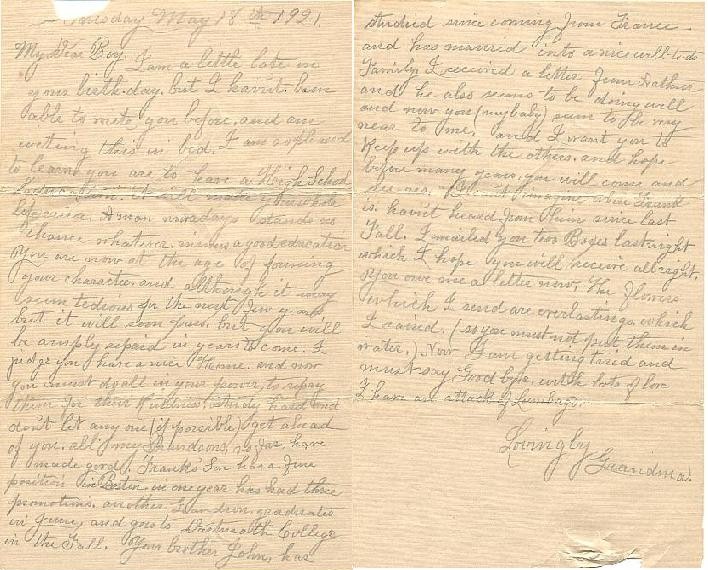 Tuesday May 18th 1921.
My Dear Boy
I am a little late in
your birth-day. but I havint been
able to write you before, and am
writing this in bed. I am so pleased
to learn you are to have a High School
Education. it will make your whole
life easier. A man nowadays stands no
chance whatever, minus a good education
You are now at the age of forming
your character. and although it may
seem tedious for the next few years
but it will soon pass. but you will
be amply repaid in years to come. I
judge you have a nice Home. and now
you must do all in your power, to repay
them for their Kindness, study hard and
dont let any one (if possible) get ahead
of you. all my Grandsons, so far, have
made good. Frank's Son has a fine
position in Boston in one year has had three
promotions. another Grandson graduates
in June, and goes to Dartmouth College
in the Fall. Your brother John, has
studied since coming from France
and has married into a nice well-to-do
Family. I received a letter from Arthur
and he also seems to be doing well
and now you (my baby) seem to be very
near to me. and I want you to
Keep up with the others. and hope
before many years, you will come and
see me, I can't imagine where Frank
is. havit heard from him since last
Fall. I mailed you two Boxes last night
which I hope you will receive all right.
You owe me a letter now, the flowers
which I send are everlastings which
I raised. (so you must not put them in
water.) Now I am getting tired and
must say Good bye, with lots of love
I have an attack of Lumbago.
Lovingly
Grandma.